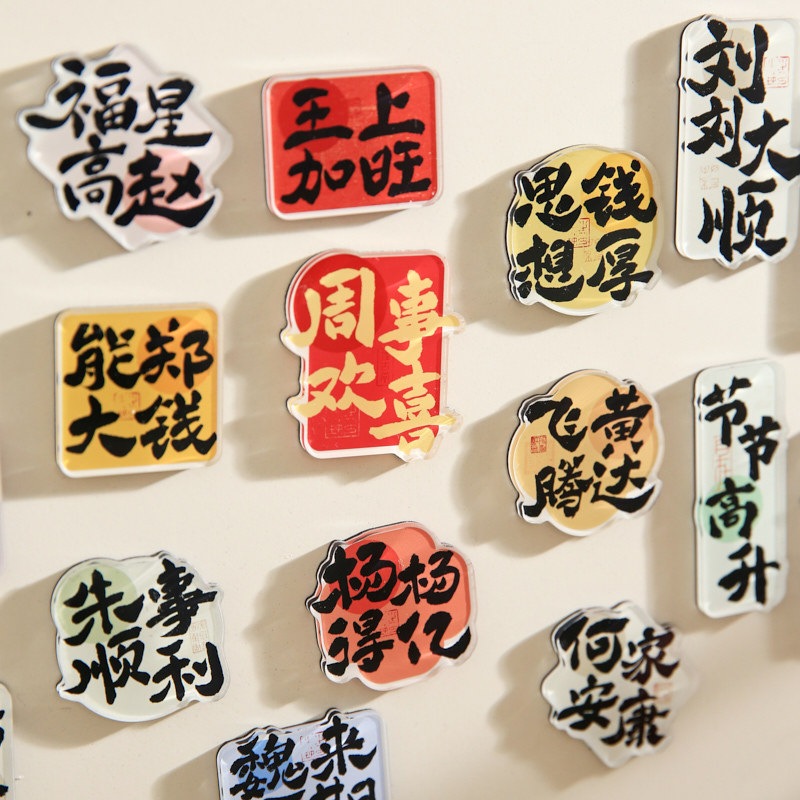 福星
高赵
王上
加旺
刘刘大顺
思钱
想厚
能郑
大钱
周事
欢喜
飞黄
腾达
节节高升
朱事
顺利
杨杨
得亿
何家
安康
魏来